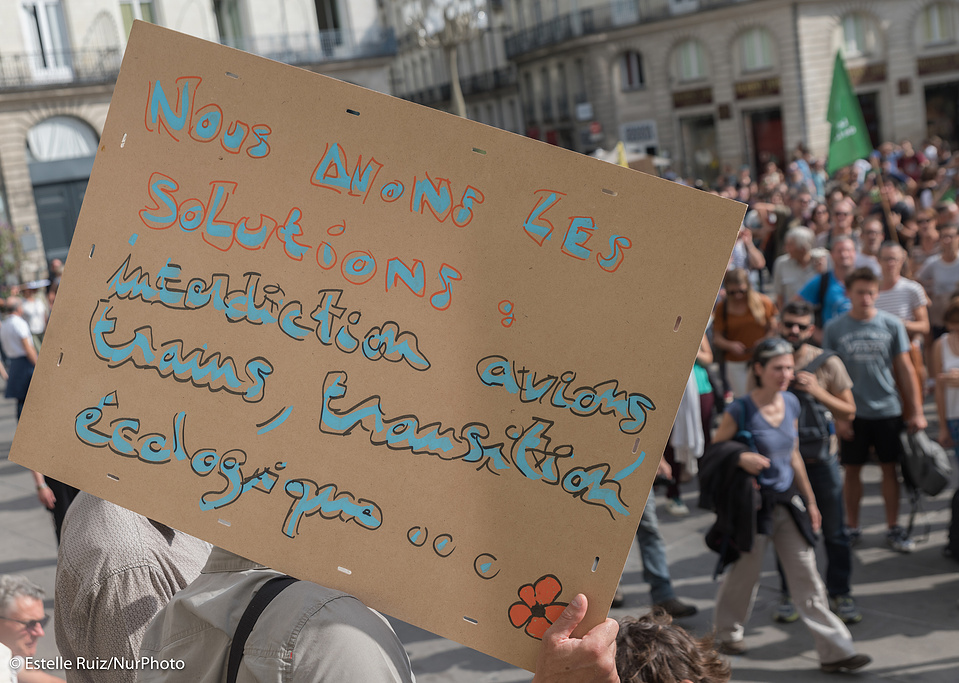 Nous AVONS LES
SOLUTIONS :
interdiction avions
trains, transition,
écologique...
©Estelle Ruiz/NurPhoto